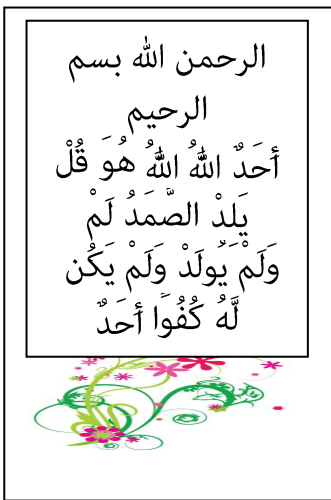 الرحمن الله بسم
الرحيم
أَحَدٌ اللهُ اللهُ هُوَ قُلْ
يَلِدْ الصَّمَدُ لَمْ
وَلَمْ يُولَدْ وَلَمْ يَكُن
لَّهُ كُفُوًا أَحَدٌ